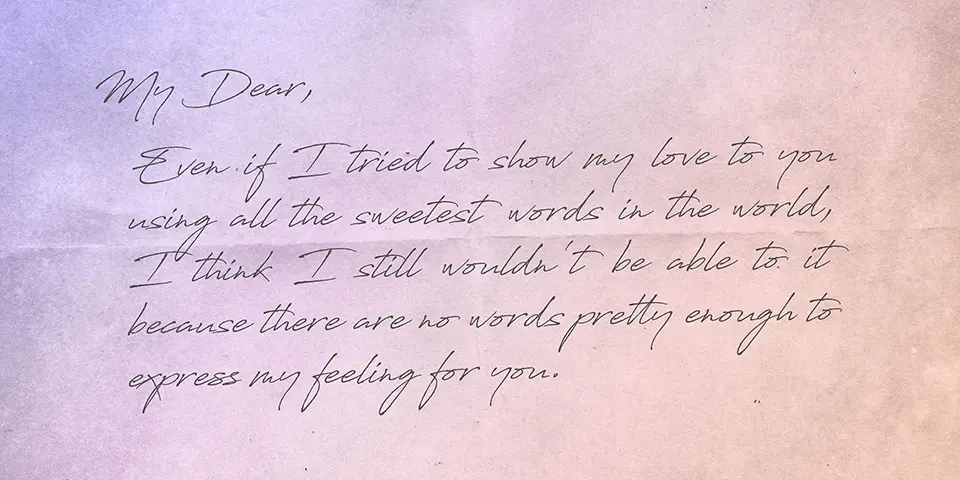 My Dear,
Even if I tried to show my love to you
using all the sweetest words in the world,
I think I still wouldn't be able to it
because there are no words pretty enough to
express my feeling for you.